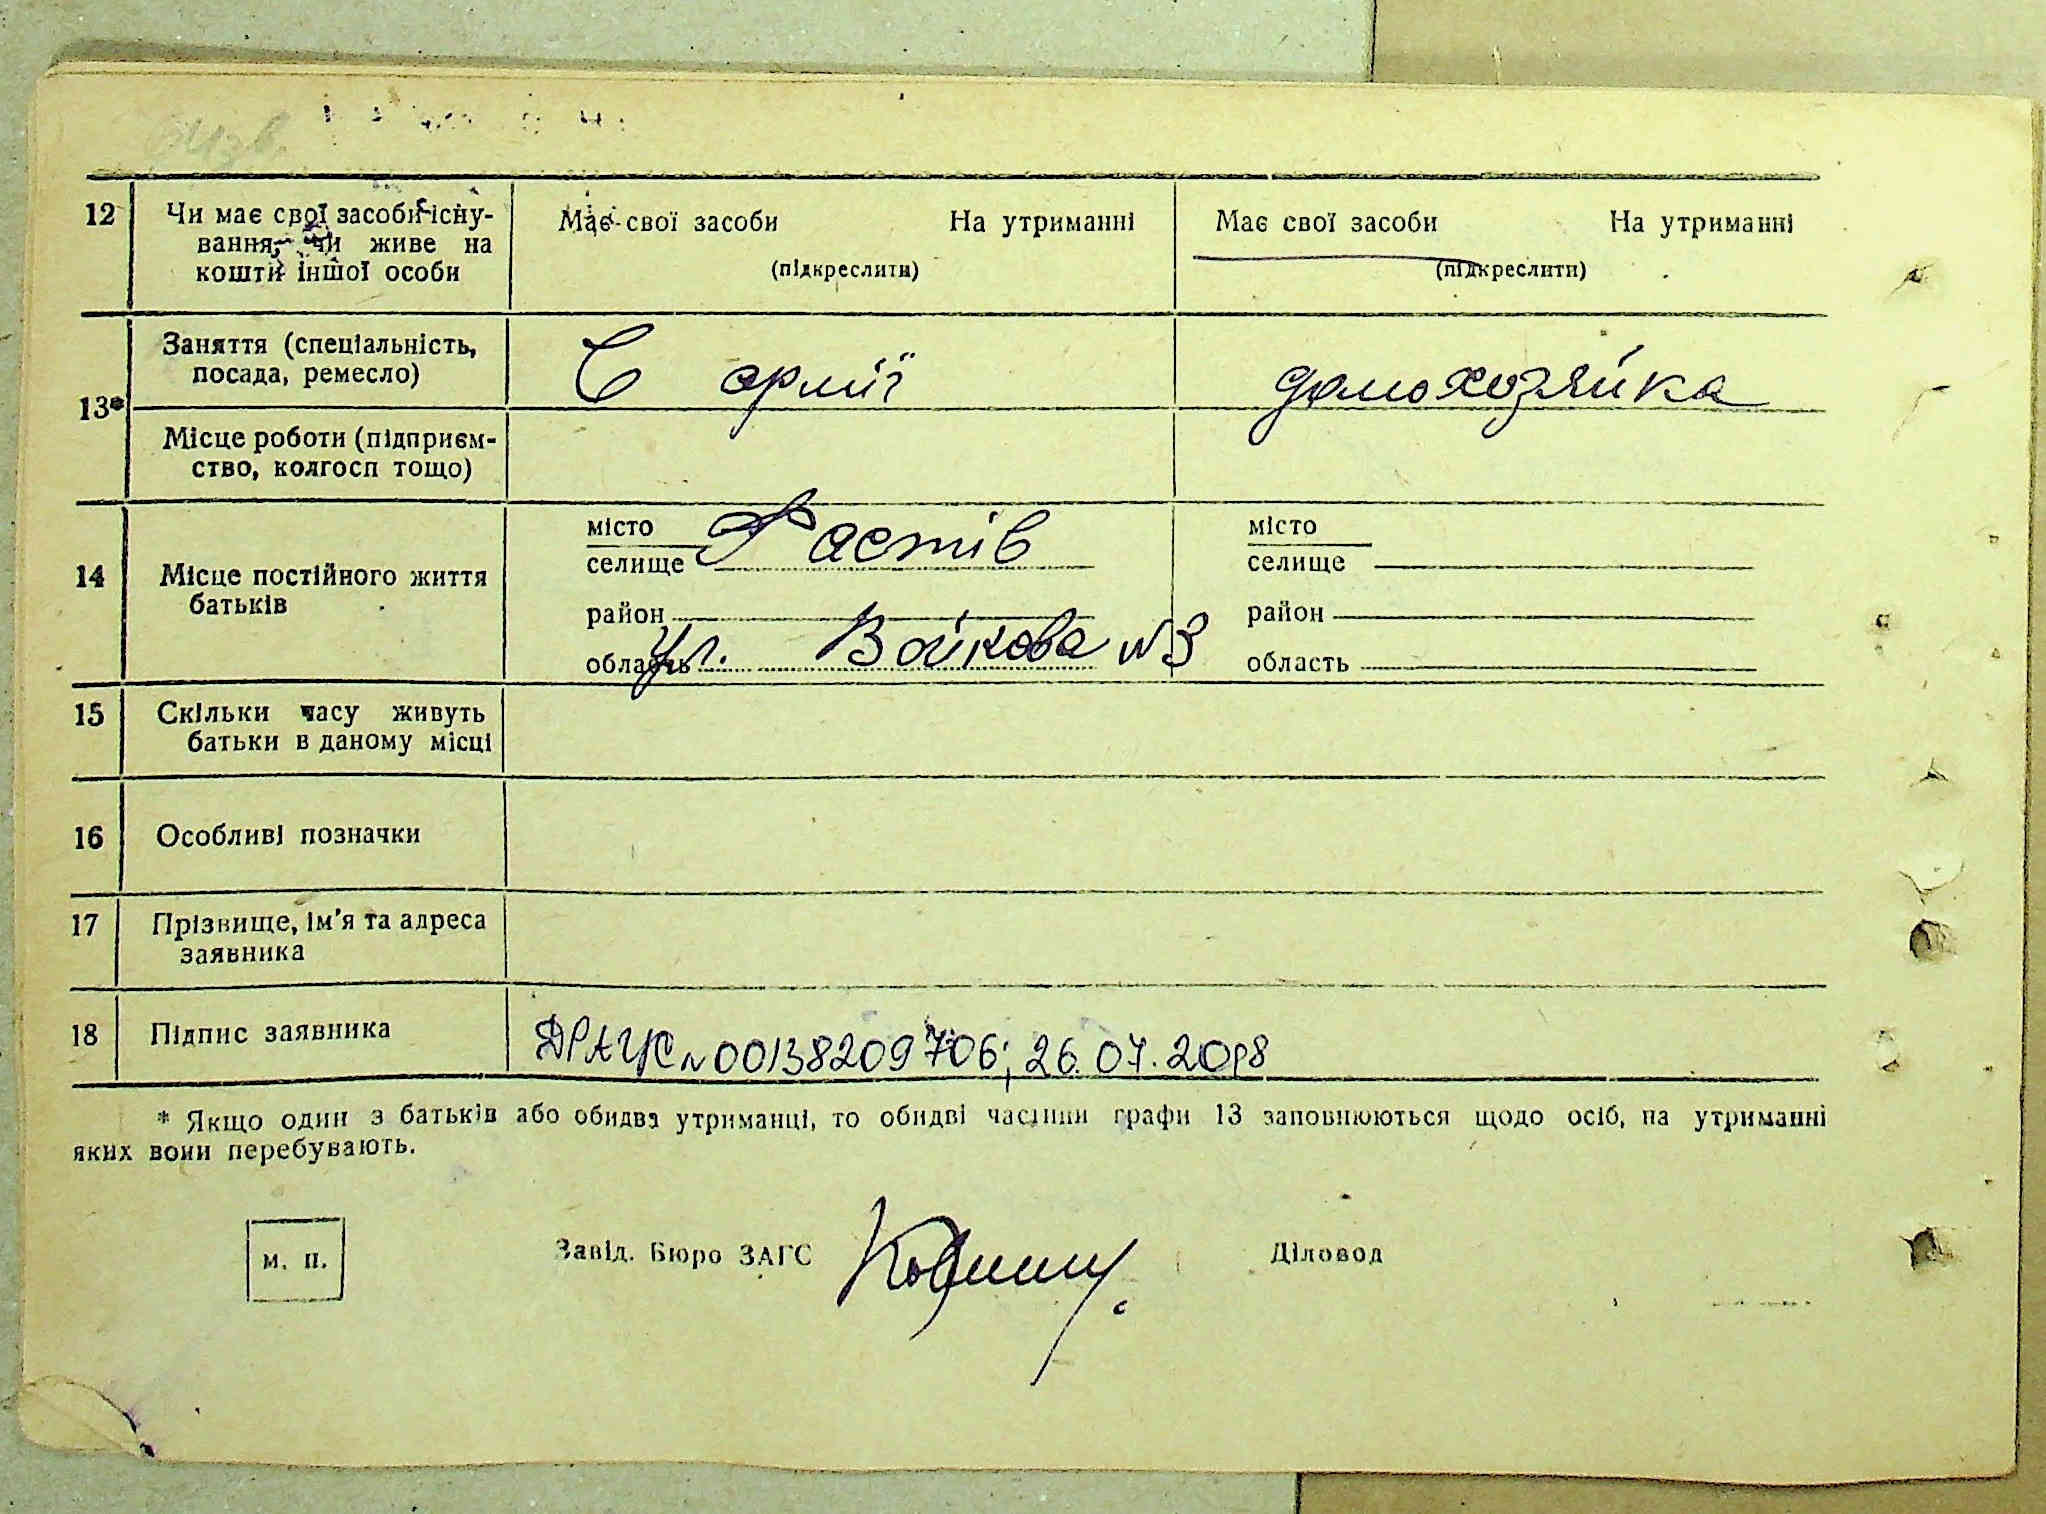 12 Чи має свої засоби існу- Має свої засоби На утриманні Має свої засоби На утриманні
вання, чи живе на
кошти іншої особи (підкреслити) (підкреслити)
Заняття (спеціальність, Є армії домохозяйка
посада, ремесло)
13*
Місце роботи (підприєм-
ство, колгосп тощо)
місто Фастів місто
селище селище
14 Місце постійного життя
батьків
район район
область ул. Войкова №3 область
15 Скільки часу живуть
батьки в даному місці
16 Особливі позначки
17 Прізвище, ім'я та адреса
заявника
18 Підпис заявника ДРАЦС №00138209706; 26.07.2018
* Якщо один з батьків або обидва утриманці, то обидві частини графи 13 заповнюються щодо осіб, на утриманні
яких вони перебувають.
м. п. Завід. Бюро ЗАГС Діловод